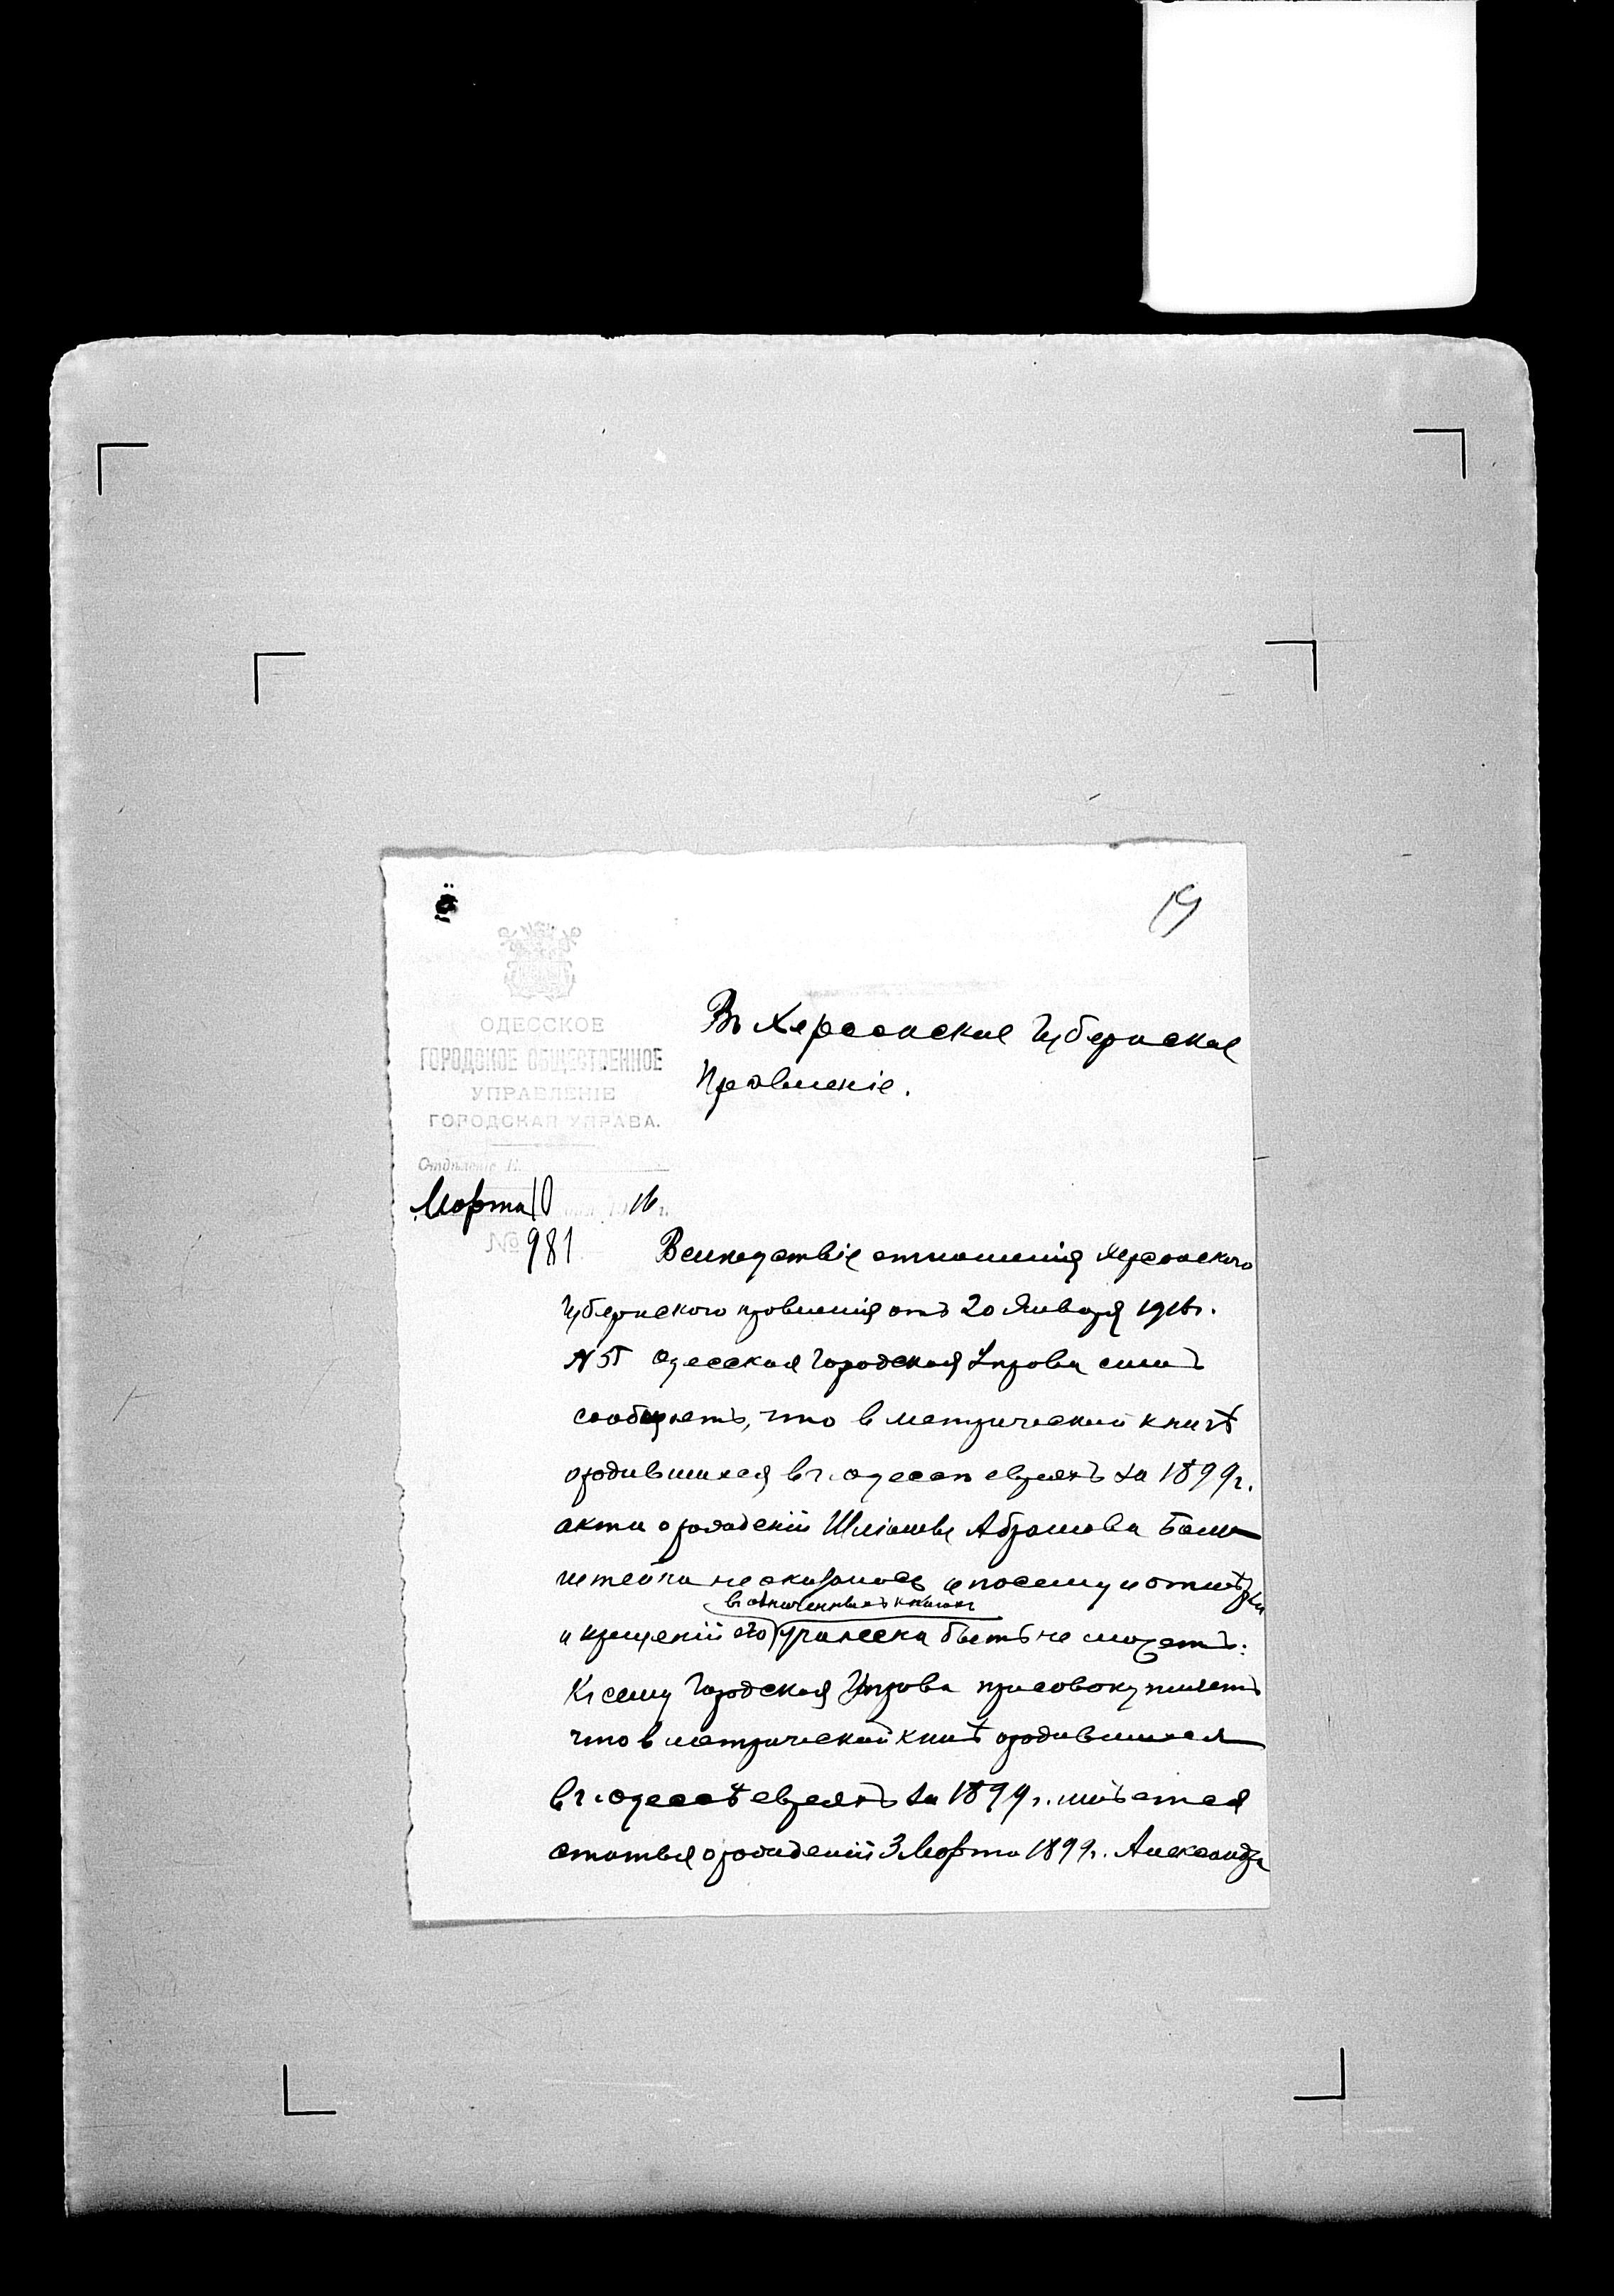 19
ОДЕССКОЕ
ГОРОДСКОЕ ОБЩЕСТВЕННОЕ
УПРАВЛЕНІЕ
ГОРОДСКАЯ УПРАВА.
Отдѣленіе
Марта 10 16 г.
№ 981
Въ Херсонское Губернское
Правленіе.
Вслѣдствіе отношенія Херсонского
Губернского правленія отъ 20 Января 1916 г.
Одесская Городская Управа симъ
сообщаетъ, что в метрической книгѣ
о родившихся в г. Одессѣ евреяхъ за 1899 г.
акта о рожденіи Абрамова
не оказалось и посему и отмѣтки
в книгах
о крещеніи его учинена быть не можетъ.
К сему Городская Управа присовокупляетъ
что в метрической книгѣ о родившихся
в г. Одессѣ евреяхъ за 1899 г. имѣется
статья о рожденіи 3 Марта 1899 г. Александра